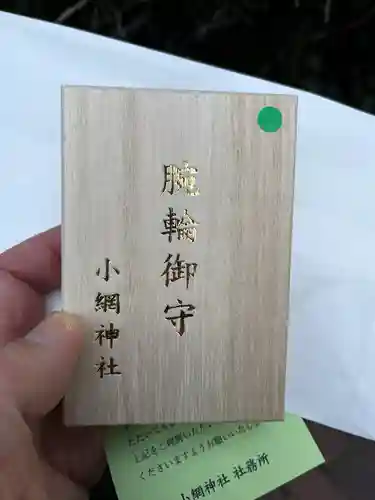 腕輪御守
小網神社
上記をご理解いただ
くださいますようお願いいたし
小網神社 社務所